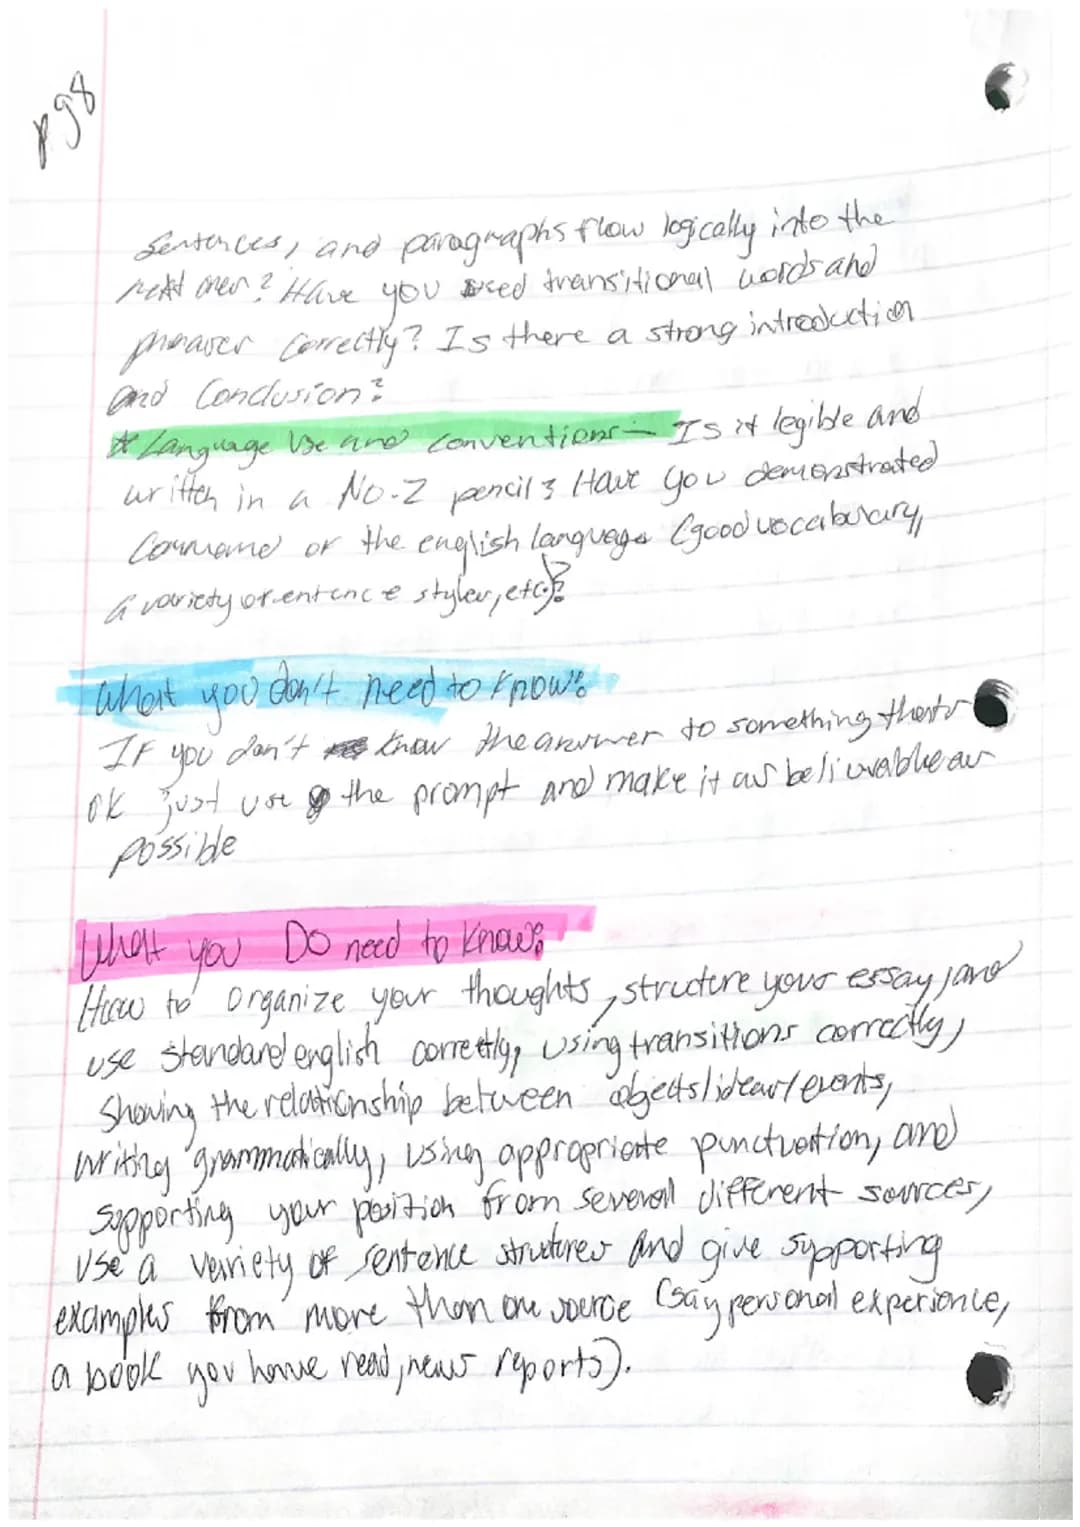 pg8
sentences, and paragraphs flow logically into the
next ones? Have you used transitional words and
phrases correctly? Is there a strong introduction
and Conclusion?
* Language Use and conventions - Is it legible and
written in a No-2 pencil? Have you demonstrated
Command of the english language (good vocabulary,
a variety of sentence styles, etc.)?
What you don't need to know:
If you don't know the answer to something that's
ok just use the prompt and make it as believable as
possible
What you DO need to know:
How to organize your thoughts, structure your essay, and
use standard english correctly, using transitions correctly,
Showing the relationship between objects/ideas/events,
writing grammatically, using appropriate punctuation, and
supporting your position from several different sources,
Use a variety of sentence structures and give supporting
examples from more than one source (say personal experience,
a book you have read, news reports).